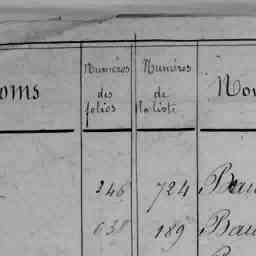 oms
Numéros
des
folios
Numéros
de
Nou
246 724 Bau
638 189 Bau